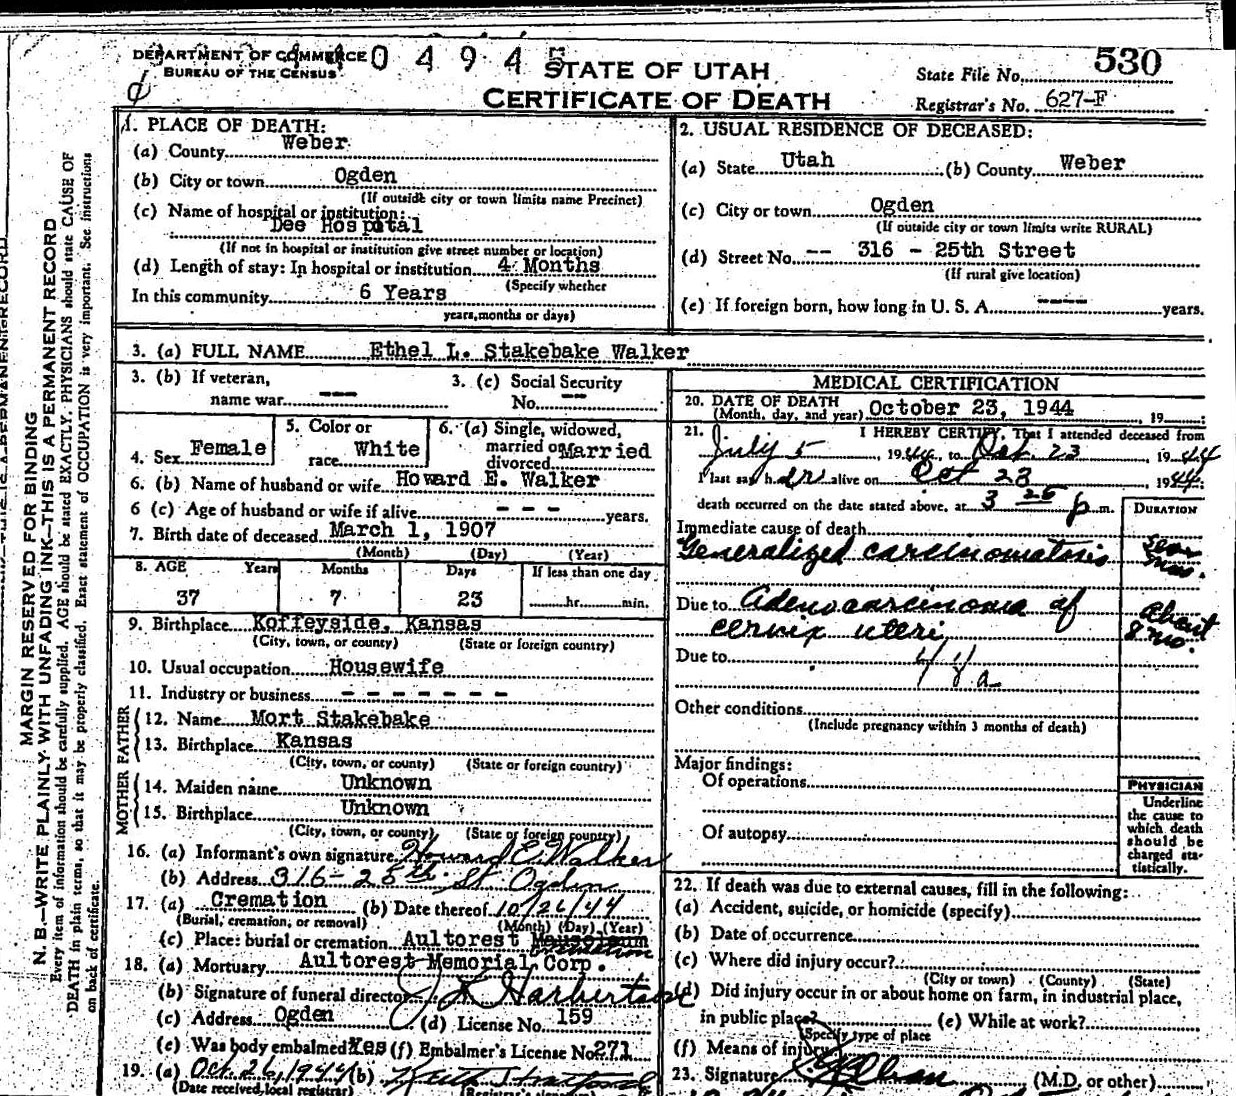 DEPARTMENT OF COMMERCE
BUREAU OF THE CENSUS
0 4 9 4 5
STATE OF UTAH
CERTIFICATE OF DEATH
State File No. 530
Registrar's No. 627-F
MARGIN RESERVED FOR BINDING
N. B.—WRITE PLAINLY, WITH UNFADING INK—THIS IS A PERMANENT RECORD
Every item of information should be carefully supplied. AGE should be stated EXACTLY. PHYSICIANS should state CAUSE OF
DEATH in plain terms, so that it may be properly classified. Exact statement of OCCUPATION is very important. See instructions
on back of certificate.
1. PLACE OF DEATH:
(a) County Weber
(b) City or town Ogden
(If outside city or town limits name Precinct)
(c) Name of hospital or institution:
Dee Hospital
(If not in hospital or institution give street number or location)
(d) Length of stay: In hospital or institution 4 Months
(Specify whether
In this community 6 Years
years, months or days)
2. USUAL RESIDENCE OF DECEASED:
(a) State Utah (b) County Weber
(c) City or town Ogden
(If outside city or town limits write RURAL)
(d) Street No. -- 316 - 25th Street
(If rural give location)
(e) If foreign born, how long in U. S. A. ---- years.
3. (a) FULL NAME Ethel L. Stakebake Walker
3. (b) If veteran, name war --- 3. (c) Social Security No. --
4. Sex Female 5. Color or race White 6. (a) Single, widowed, married or divorced Married
6. (b) Name of husband or wife Howard E. Walker
6 (c) Age of husband or wife if alive - - - years.
7. Birth date of deceased March 1, 1907
(Month) (Day) (Year)
8. AGE Years Months Days If less than one day
37 7 23 hr. min.
9. Birthplace Koffeyside, Kansas
(City, town, or county) (State or foreign country)
10. Usual occupation Housewife
11. Industry or business - - - - - - -
FATHER
12. Name Mort Stakebake
13. Birthplace Kansas
(City, town, or county) (State or foreign country)
MOTHER
14. Maiden name Unknown
15. Birthplace Unknown
(City, town, or county) (State or foreign country)
16. (a) Informant's own signature Howard E. Walker
(b) Address 316-25th St Ogden
17. (a) Cremation (b) Date thereof 10/26/44
(Burial, cremation, or removal) (Month) (Day) (Year)
(c) Place: burial or cremation Aultorest Mausoleum
18. (a) Mortuary Aultorest Memorial Corp.
(b) Signature of funeral director
(c) Address Ogden (d) License No. 159
(e) Was body embalmed Yes (f) Embalmer's License No. 271
19. (a) Oct. 26, 1944 (b) Keith Stratford
(Date received local registrar) (Registrar's signature)
MEDICAL CERTIFICATION
20. DATE OF DEATH
(Month, day, and year) October 23, 1944 19
21. I HEREBY CERTIFY, That I attended deceased from
July 5, 1944, to Oct. 23, 1944
I last saw her alive on Oct 23 1944;
death occurred on the date stated above, at 3 25 p m.
DURATION
Immediate cause of death
Generalized carcinomatosis
mos.
Due to Adenocarcinoma of
cervix uteri
About
8 mo.
Due to
Other conditions
(Include pregnancy within 3 months of death)
Major findings:
Of operations
Of autopsy
PHYSICIAN
Underline
the cause to
which death
should be
charged sta-
tistically.
22. If death was due to external causes, fill in the following:
(a) Accident, suicide, or homicide (specify)
(b) Date of occurrence
(c) Where did injury occur?
(City or town) (County) (State)
(d) Did injury occur in or about home on farm, in industrial place,
in public place? (e) While at work?
(Specify type of place
(f) Means of injury
23. Signature (M.D. or other)